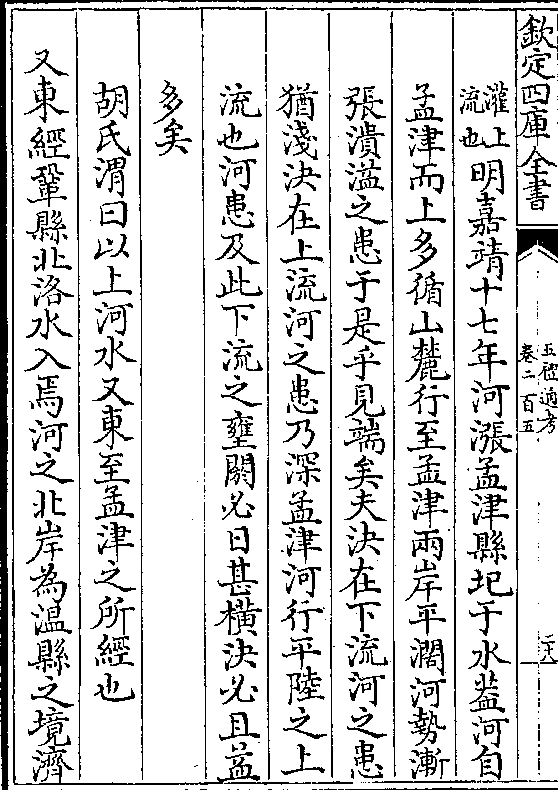 欽定四庫全書
五禮通考
卷二百五
灌上
流也明嘉靖十七年河漲孟津縣圮于水葢河自
孟津而上多循山麓行至孟津兩岸平濶河勢漸
張潰溢之患于是乎見端矣夫決在下流河之患
猶淺決在上流河之患乃深孟津河行平陸之上
流也河患及此下流之壅閼必日甚橫決必且益
多矣
胡氏渭曰以上河水又東至孟津之所經也
又東經鞏縣北洛水入焉河之北岸為溫縣之境濟